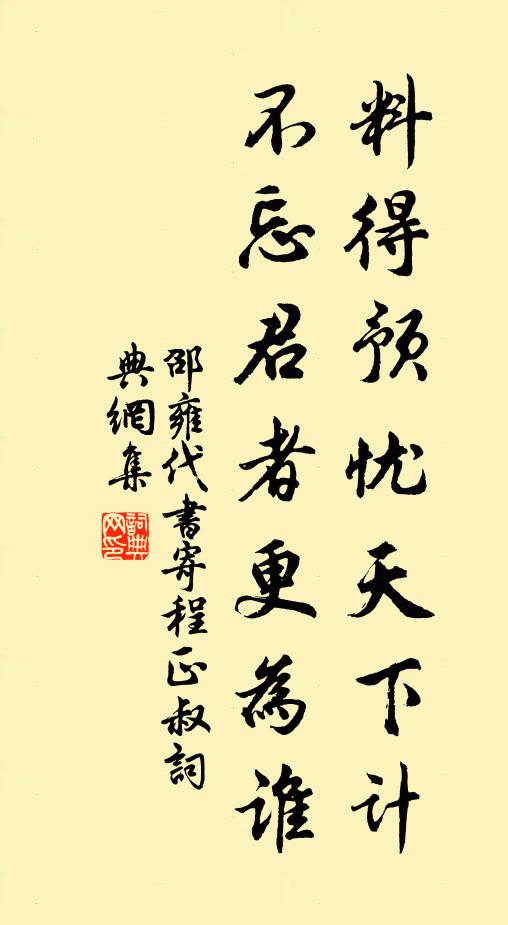 料得预忧天下计
不忘君者更為谁
邵雍代書寄程正叔詞
典網集
詞典
网印